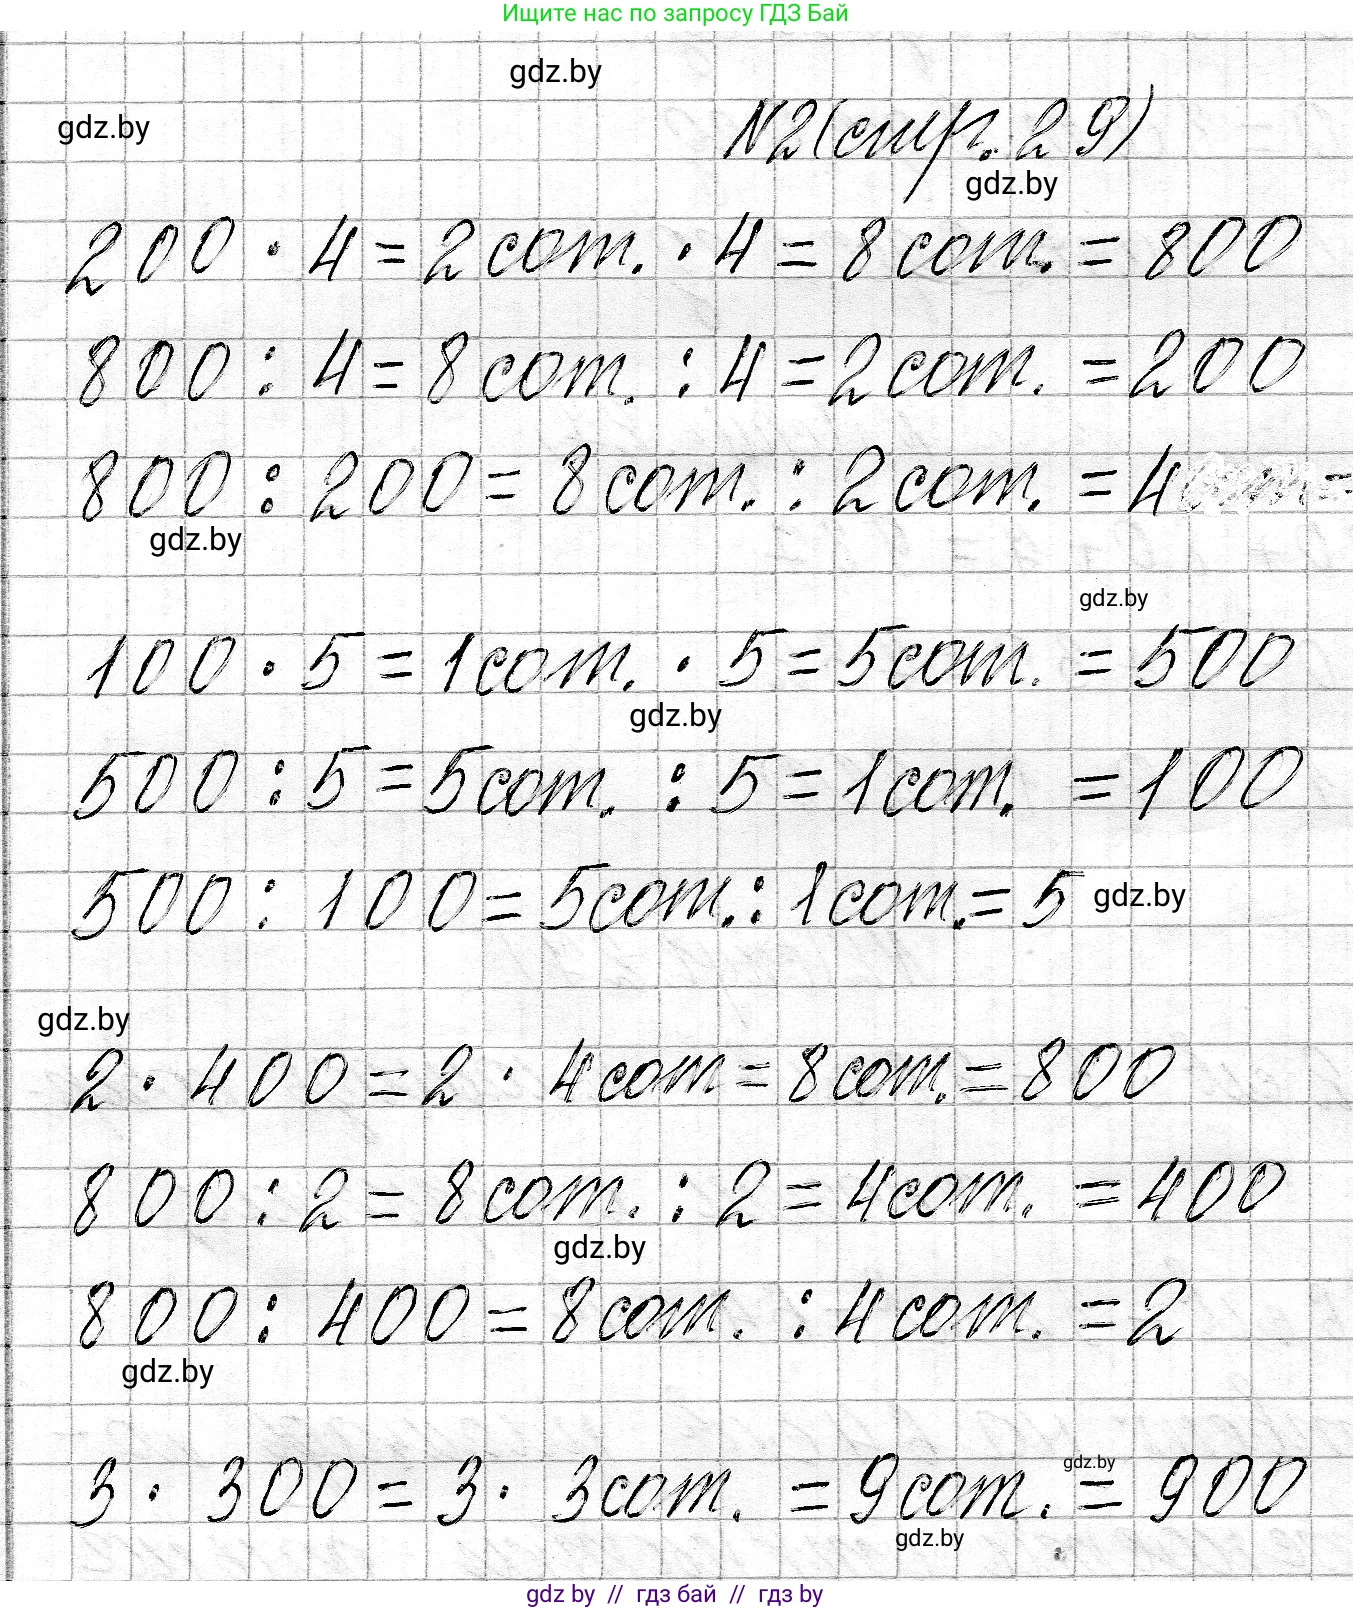 Ищите нас по запросу ГДЗ Бай
gdz.by
gdz.by
N2(стр. 29)
gdz.by
200 · 4 = 2 сот. · 4 = 8 сот. = 800
800 : 4 = 8 сот. : 4 = 2 сот. = 200
800 : 200 = 8 сот. : 2 сот. = 4
gdz.by
gdz.by
100 · 5 = 1 сот. · 5 = 5 сот. = 500
gdz.by
500 : 5 = 5 сот. : 5 = 1 сот. = 100
500 : 100 = 5 сот. : 1 сот. = 5 gdz.by
gdz.by
2 · 400 = 2 · 4 сот = 8 сот. = 800
800 : 2 = 8 сот. : 2 = 4 сот. = 400
gdz.by
800 : 400 = 8 сот. : 4 сот. = 2
gdz.by
gdz.by
3 · 300 = 3 · 3 сот. = 9 сот. = 900
gdz.by
gdz by // гдз бай // гдз by